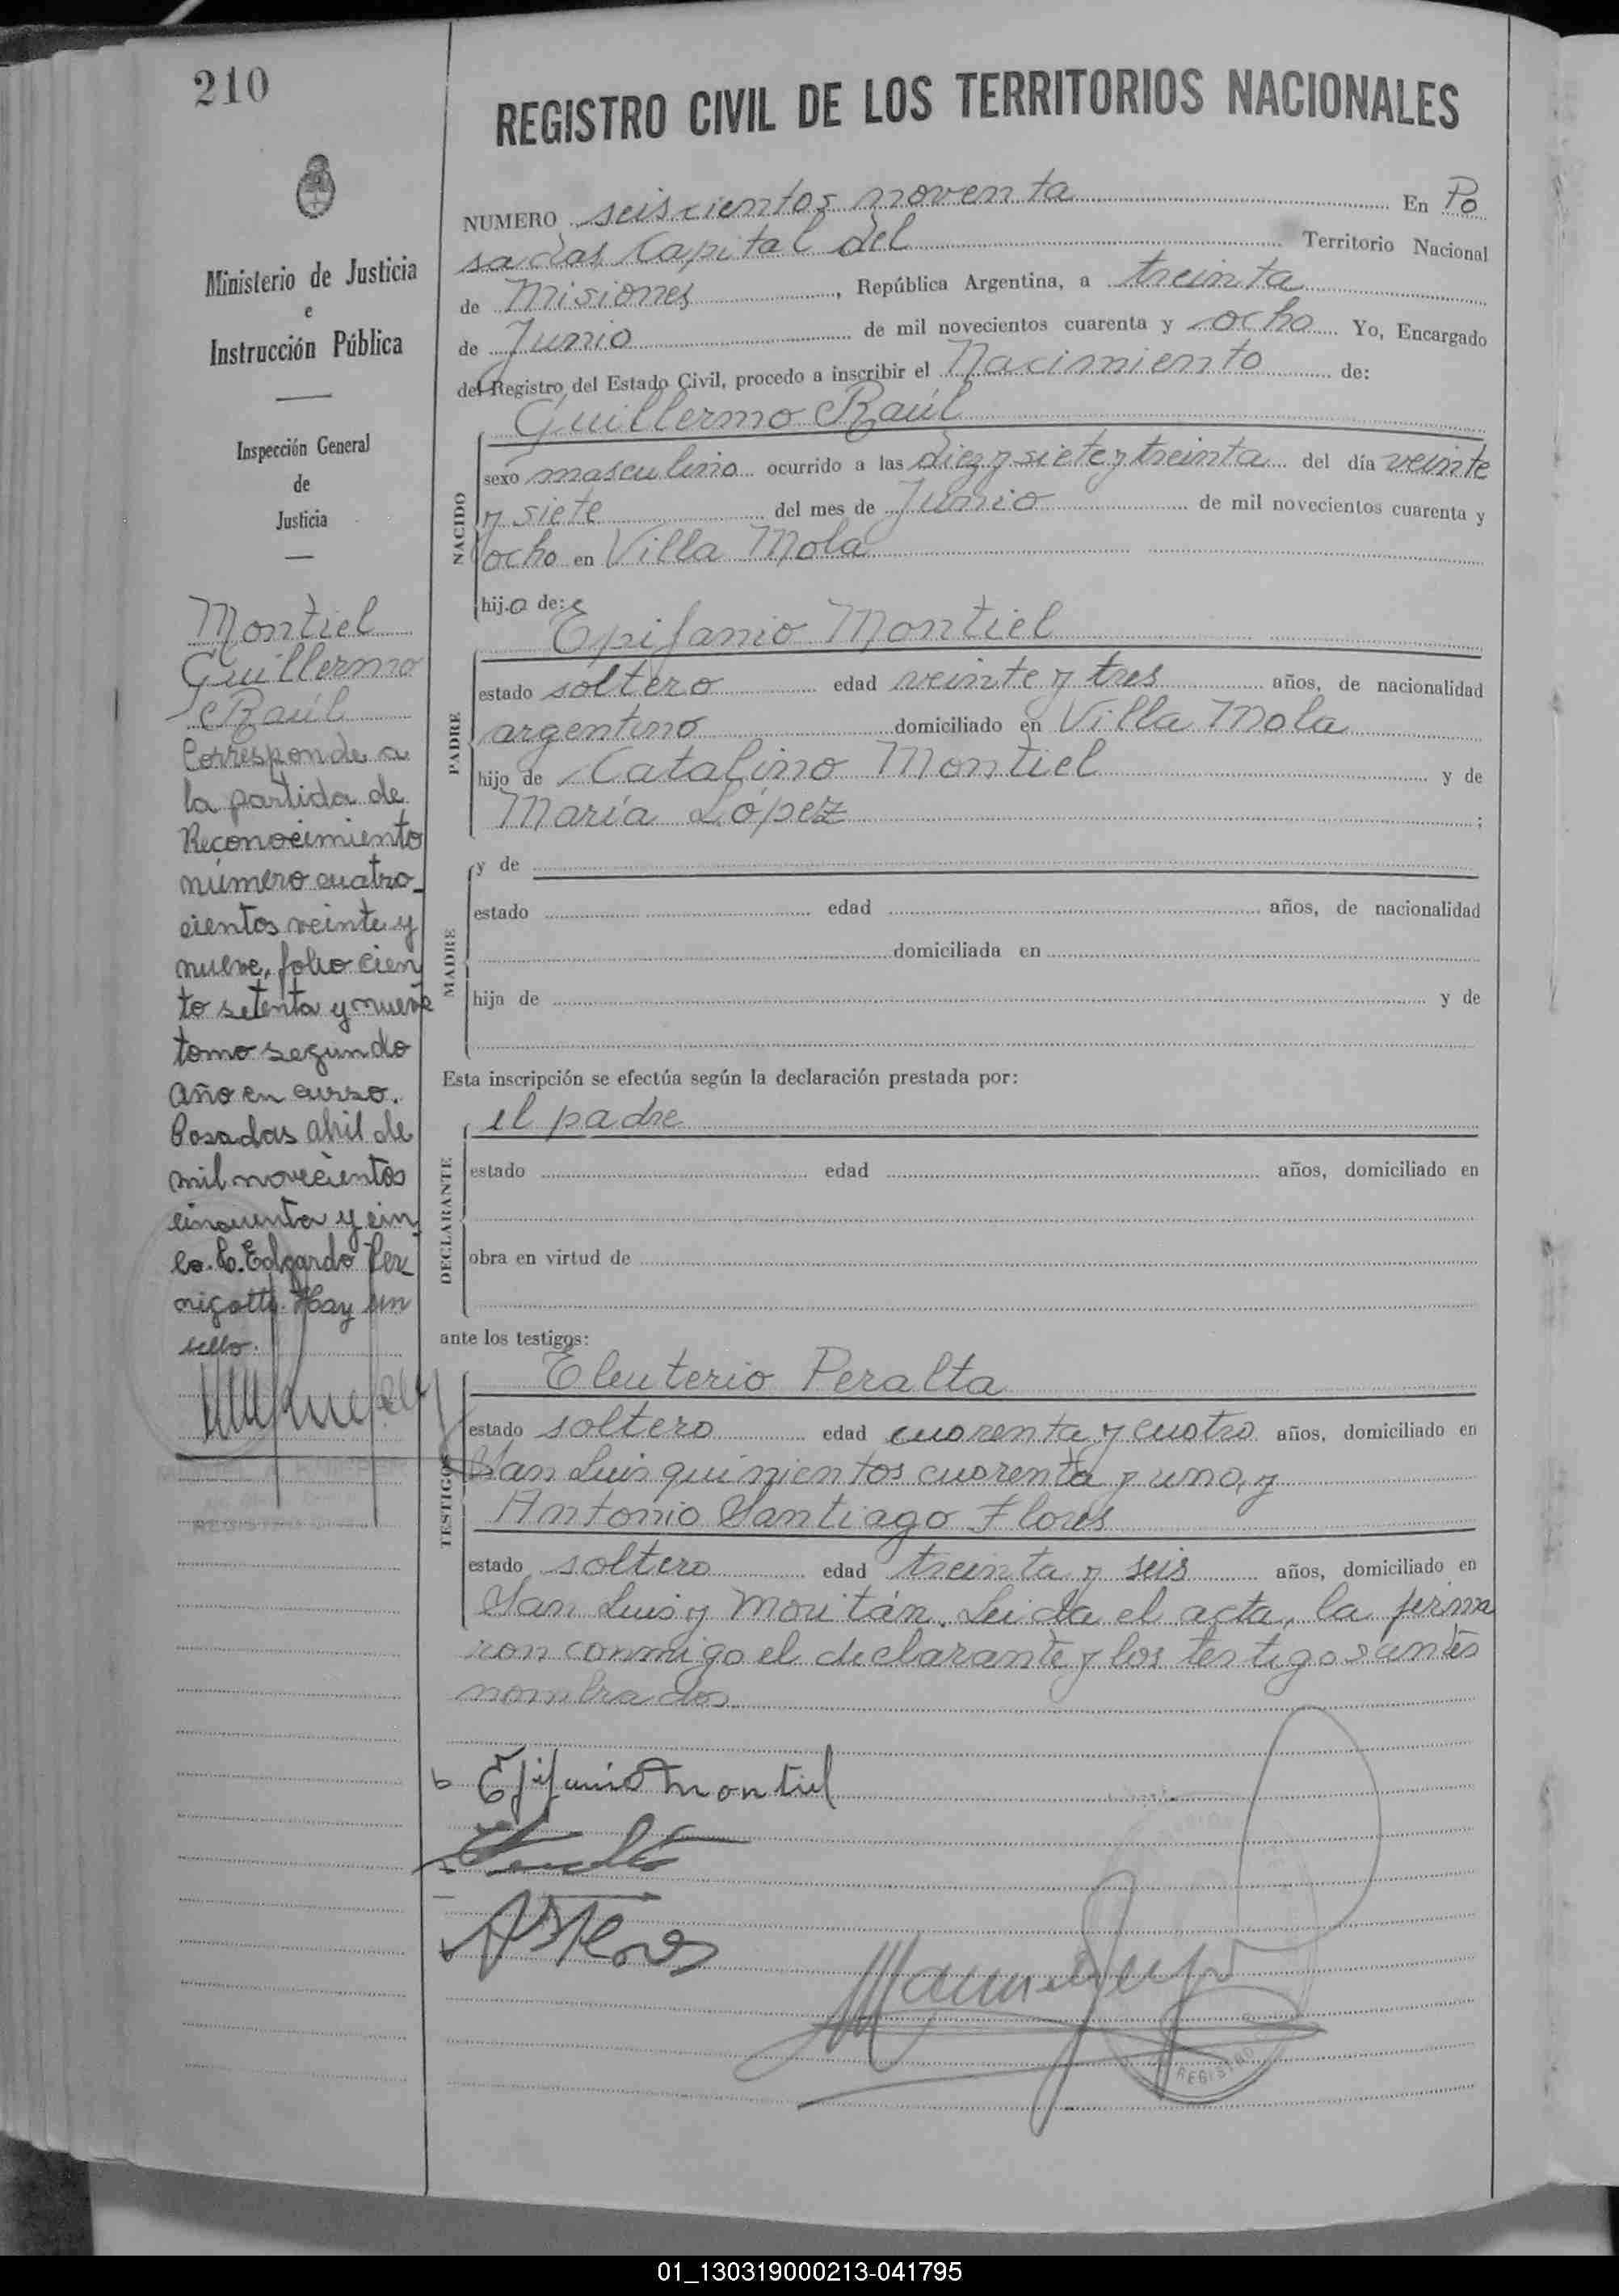 210
REGISTRO CIVIL DE LOS TERRITORIOS NACIONALES
Ministerio de Justicia
e
Instrucción Pública
Inspección General
de
Justicia
Montiel
Guillermo
Raúl
Corresponde a
la partida de
Reconocimiento
número cuatro
cientos veinte y
nueve, folio cien
to setenta y nueve
tomo segundo
año en curso.
Posadas abril de
mil novecientos
cincuenta y cin
co. Edgardo
Hay un
sello.
NUMERO seiscientos noventa En Po
sadas Capital del Territorio Nacional
de Misiones, República Argentina, a treinta
de Junio de mil novecientos cuarenta y ocho Yo, Encargado
del Registro del Estado Civil, procedo a inscribir el Nacimiento de:
NACIDO
Guillermo Raúl
sexo masculino ocurrido a las diez y siete y treinta del día veinte
y siete del mes de Junio de mil novecientos cuarenta y
ocho en Villa Mola
hijo de:
PADRE
Epifanio Montiel
estado soltero edad veinte y tres años, de nacionalidad
argentino domiciliado en Villa Mola
hijo de Catalino Montiel y de
María López ;
MADRE
y de
estado edad años, de nacionalidad
domiciliada en
hija de y de
Esta inscripción se efectúa según la declaración prestada por:
DECLARANTE
el padre
estado edad años, domiciliado en
obra en virtud de
ante los testigos:
TESTIGOS
Eleuterio Peralta
estado soltero edad cuarenta y cuatro años, domiciliado en
San Luis quinientos cuarenta y uno, y
Antonio Santiago Flores
estado soltero edad treinta y seis años, domiciliado en
San Luis y Moritán. Leida el acta, la firma
ron conmigo el declarante y los testigos antes
nombrados.
Epifanio Montiel
A S Flores
REGISTRO
01_130319000213-041795